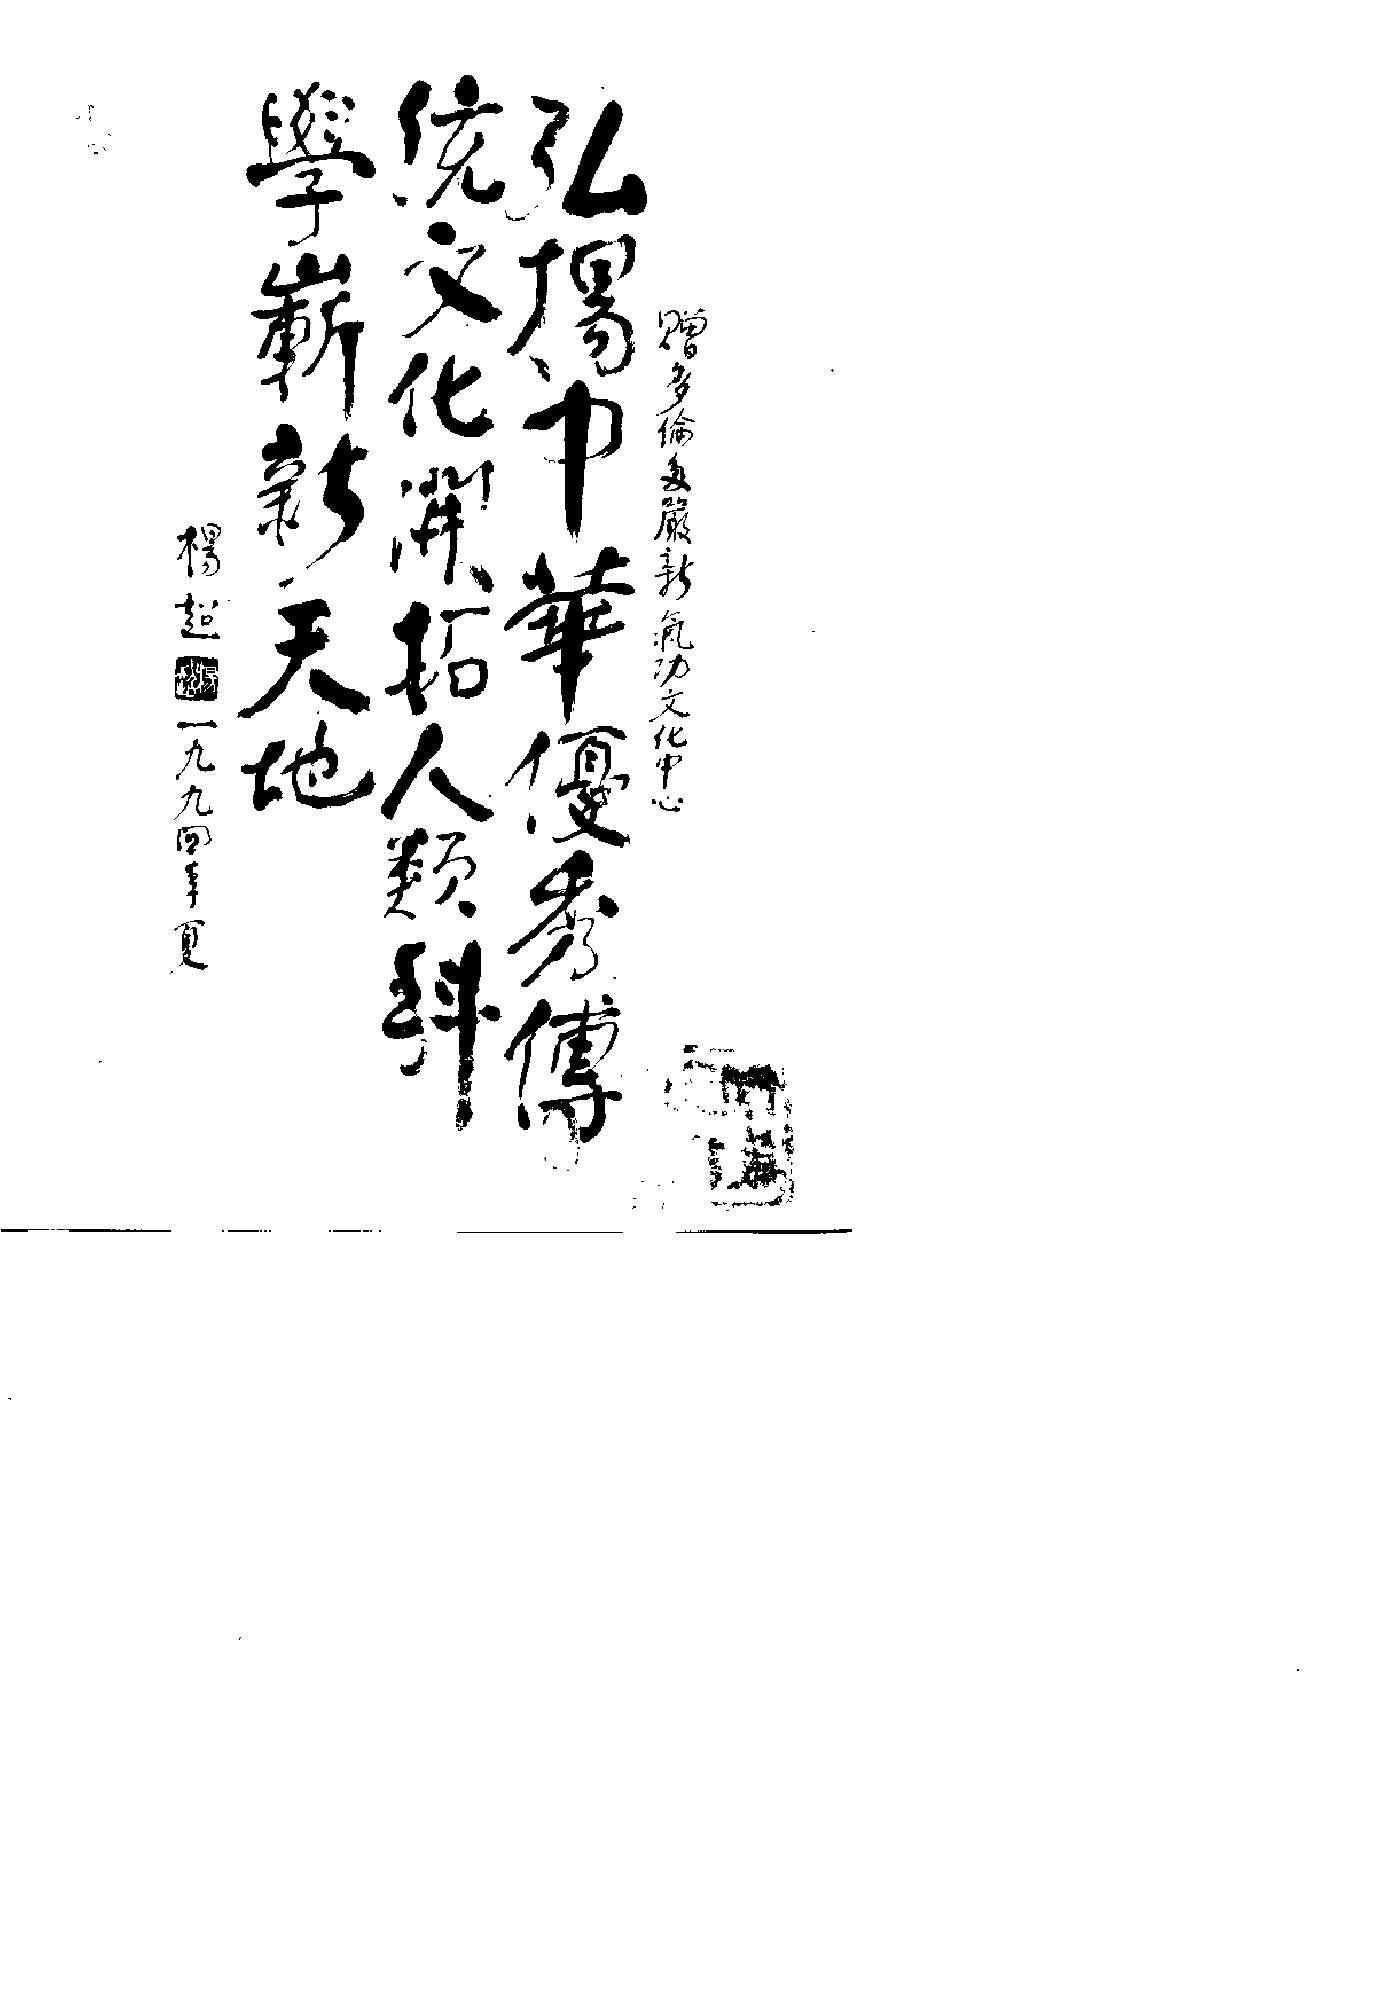 贈多倫多嚴新氣功文化中心
弘揚中華優秀傳
統文化開拓人類科
學嶄新天地
楊超
一九九四年夏